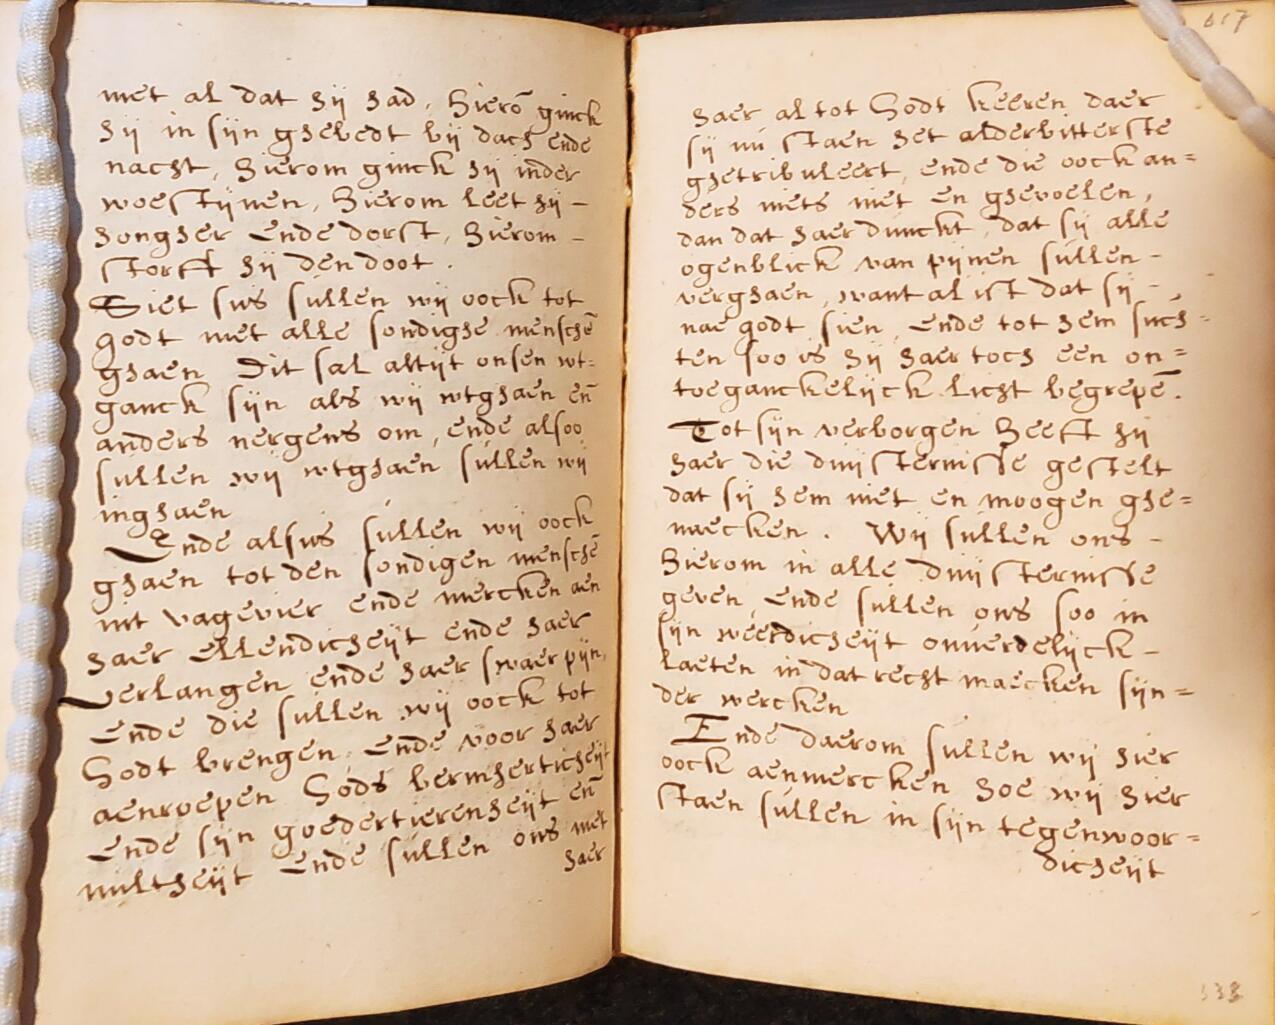 met al dat hij had, hierō ginck
hij in sijn ghebedt bij dach ende
nacht, hierom ginck hij inder
woestijnen, hierom leet hij -
hongher ende dorst, hierom -
storft hij den doot.
Siet sus sullen wij oock tot
godt met alle sondighe menschē
ghaen Dit sal altijt onsen wt-
ganck sijn als wij wtghaen eñ
anders nergens om, ende alsoo
sullen wij wtghaen sullen wij
inghaen
Ende alsus sullen wij oock
ghaen tot den sondigen menschē
int vagevier ende mercken aen
haer ellendicheijt ende haer
verlangen ende haer swaer pijn,
ende die sullen wij oock tot
Godt brengen ende voor haer
aenroepen Gods bermherticheijt
ende sijn goedertierenheijt eñ
miltheijt ende sullen ons met
haer
617
haer al tot Godt keeren daer
sij nú staen het alderbitterste
ghetribuleert, ende die oock an=
ders niets niet en ghevoelen,
dan dat haer dunckt, dat sij alle
ogenblick van pijnen súllen -
verghaen, want al ist dat sij -
nae godt sien, ende tot hem súch-
ten soo is hij haer toch een on=
toeganckelijck licht begrepē.
Tot sijn verborgen heeft hij
haer die duijsternisse gestelt
dat sij hem niet en moogen ghe=
naecken. Wij sullen ons -
hierom in alle duijsternisse
geven, ende sullen ons soo in
sijn weerdicheijt onverdelijck -
laeten in dat recht maecken sijn=
der wercken
Ende daerom sullen wij hier
oock aenmercken hoe wij hier
staen sullen in sijn tegenwoor=
dicheijt
338